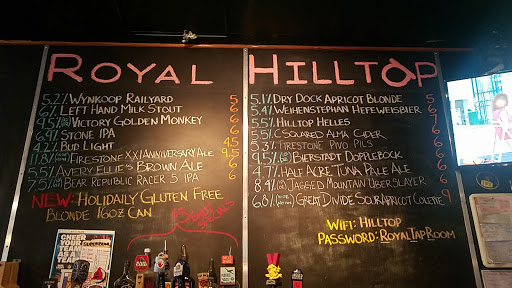 ROYAL HILLTOP
5.2% WYNKOOP RAILYARD 5
6% LEFT HAND MILK STOUT 6
9.5% VICTORY GOLDEN MONKEY 6
6.9% STONE IPA 6
4.2% BUD LIGHT 4
11.8% FIRESTONE XXI ANNIVERSARY ALE 9.5
5.5% AVERY ELLIE'S BROWN ALE 6
7.5% BEAR REPUBLIC RACER 5 IPA 6
NEW: HOLIDAILY GLUTEN FREE
BLONDE 16OZ CAN
5.1% DRY DOCK APRICOT BLONDE 5
5.4% WEIHENSTEPHAN HEFEWEISBIER 6
5.5% HILLTOP HELLES
5.5% C SQUARED ALMA CIDER
5.3% FIRESTONE PIVO PILS
9.5% BIERSTADT DOPPLEBOCK
4.7% HALF ACRE TUNA PALE ALE
8.4% JAGGED MOUNTAIN UBERSLAYER
6.8% GREAT DIVIDE SOUR APRICOT COLETTE 9
WIFI: HILLTOP
PASSWORD: ROYALTAPROOM
CHEER YOUR
TEAM AS A
TEAM